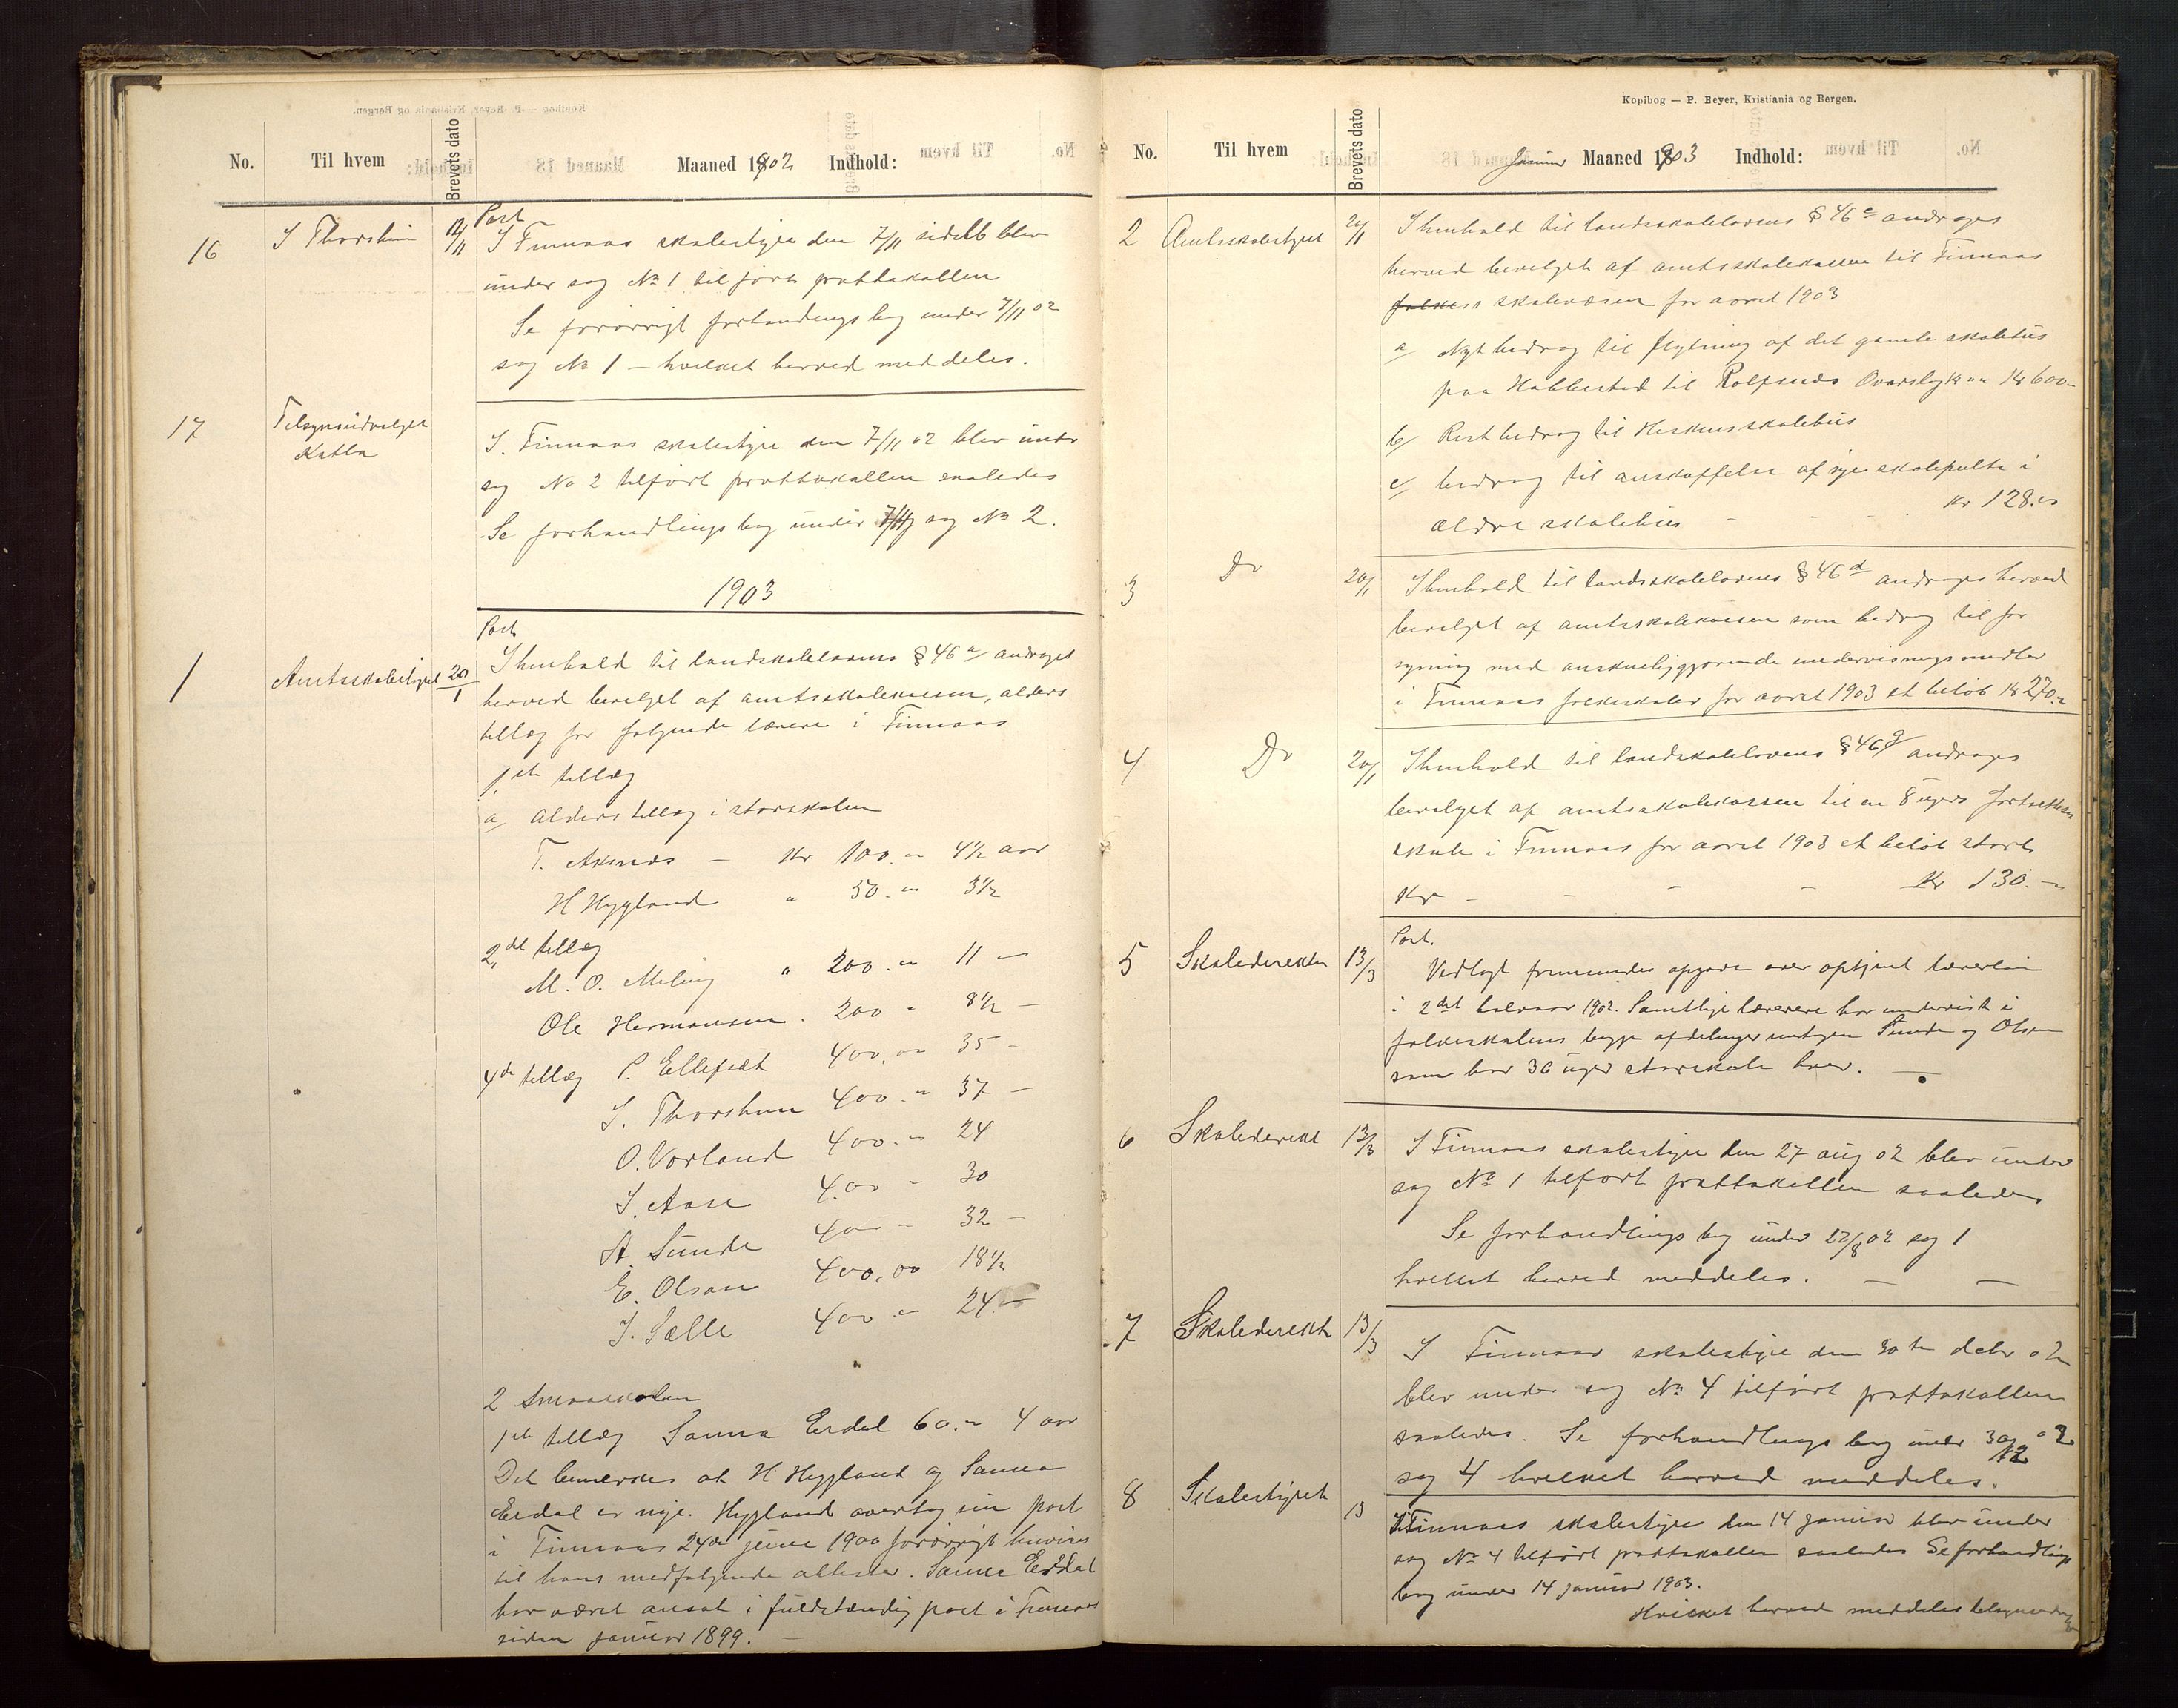 No. Til hvem Brevets dato Maaned 1902 Indhold:
16 I Thorsheim 12/11 Port
I Finnaas skolestyre den 7/11 sidstl blev
under sag No 1 tilført prottokollen
Se forøvrigt forhandlings bog under 7/11 02
sag No 1 – hvilket herved meddeles.
17 Tilsynsudvalget
Katla
I. Finnaas skolestyre den 7/11 02 blev under
sag No 2 tilført prottokollen saaledes
Se forhandlings bog under 7/11 sag No 2.
1903
Port
1 Amtsskolestyret 20/1 I henhold til landskolelovens § 46 a andrages
herved bevilget af amtsskolekassen, alders
tillæg for følgende lærere i Finnaas
1ste tillæg
a alderstillæg i storskolen
T. Aksnes – Kr 100.- 4½ aar
H Hygland " 50.- 3½
2det tillæg
M. O. Meling " 200.- 11 –
Ole Hermansen. 200 - 8½ –
4de tillæg P. Ellefset 400,00 35 –
I. Thorsheim 400.- 37 –
O. Vorland 400.- 24
I. Aase 400 - 30
A. Sunde 400 - 32 –
E. Olsen 400,00 18½
J. Sælle 400 - 24 –
2 Smaaskolen
1ste tillæg Sanna Erdal 60.- 4 aar
Det bemerkes at H. Hygland og Sanna
Erdal er nye. Hygland overtog sin post
i Finnaas 24de juni 1900 forøvrigt henvises
til hans medfølgende attester. Sanna Erdal
har været ansat i fuldstændig post i Finnaas
siden januar 1899. –
Kopibog — P. Beyer, Kristiania og Bergen.
No. Til hvem Brevets dato Januar Maaned 1903 Indhold:
2 Amtsskolestyret 20/1 I henhold til landsskolelovens § 46 c andrages
herved bevilget af amtsskolekassen til Finnaas
folkes skolevæsen for aaret 1903
a Nyt bedrag til flytning af det gamle skolehus
paa Habbestad til Rolfsnes Kr 600–
b/ Rest bedrag til skolehus
c/ bedrag til anskaffelse af nye skolepulte i
ældre skolehus - - - Kr 128.00
3 Do 20/1 I henhold til landsskolelovens § 46 d andrages herved
bevilget af amtsskolekassen som bedrag til for
syning med anskueliggjørende undervisningsmidler
i Finnaas folkeskoler for aaret 1903 et beløb Kr 270.-
4 Do 20/1 I henhold til landskolelovens § 46 g andrages
bevilget af amtsskolekassen til en 8 ugers fortsettelses
skole i Finnaas for aaret 1903 et beløb stort
Kr - - - - Kr 130.–
Port.
5 Skoledirektør 13/3 Vedlagt fremsendes opgave over optjent lærerløn
i 2det halvaar 1902. Samtlige lærere har undervist i
folkeskolens begge afdelinger untagen Sunde og Olsen
som har 36 uger storskole hver. –
6 Skoledirekt 13/3 I Finnaas skolestyre den 27 aug 02 blev under
sag No 1 tilført prottokollen saaledes
Se forhandlings bog under 27/8 02 sag 1
hvilket herved meddeles. – –
7 Skoledirekt 13/3 I Finnaas skolestyre den 30te debr 02
blev under sag No 4 tilført prottokollen
saaledes. Se forhandlings bog under 30/12 02
sag 4 hvilket herved meddeles.
8 Skolestyret 13 I Finnaas skolestyre den 14 januar blev under
sag No 4 tilført prottokollen saaledes Se forhandlings
bog under 14 januar 1903.
Hvilket herved meddeles